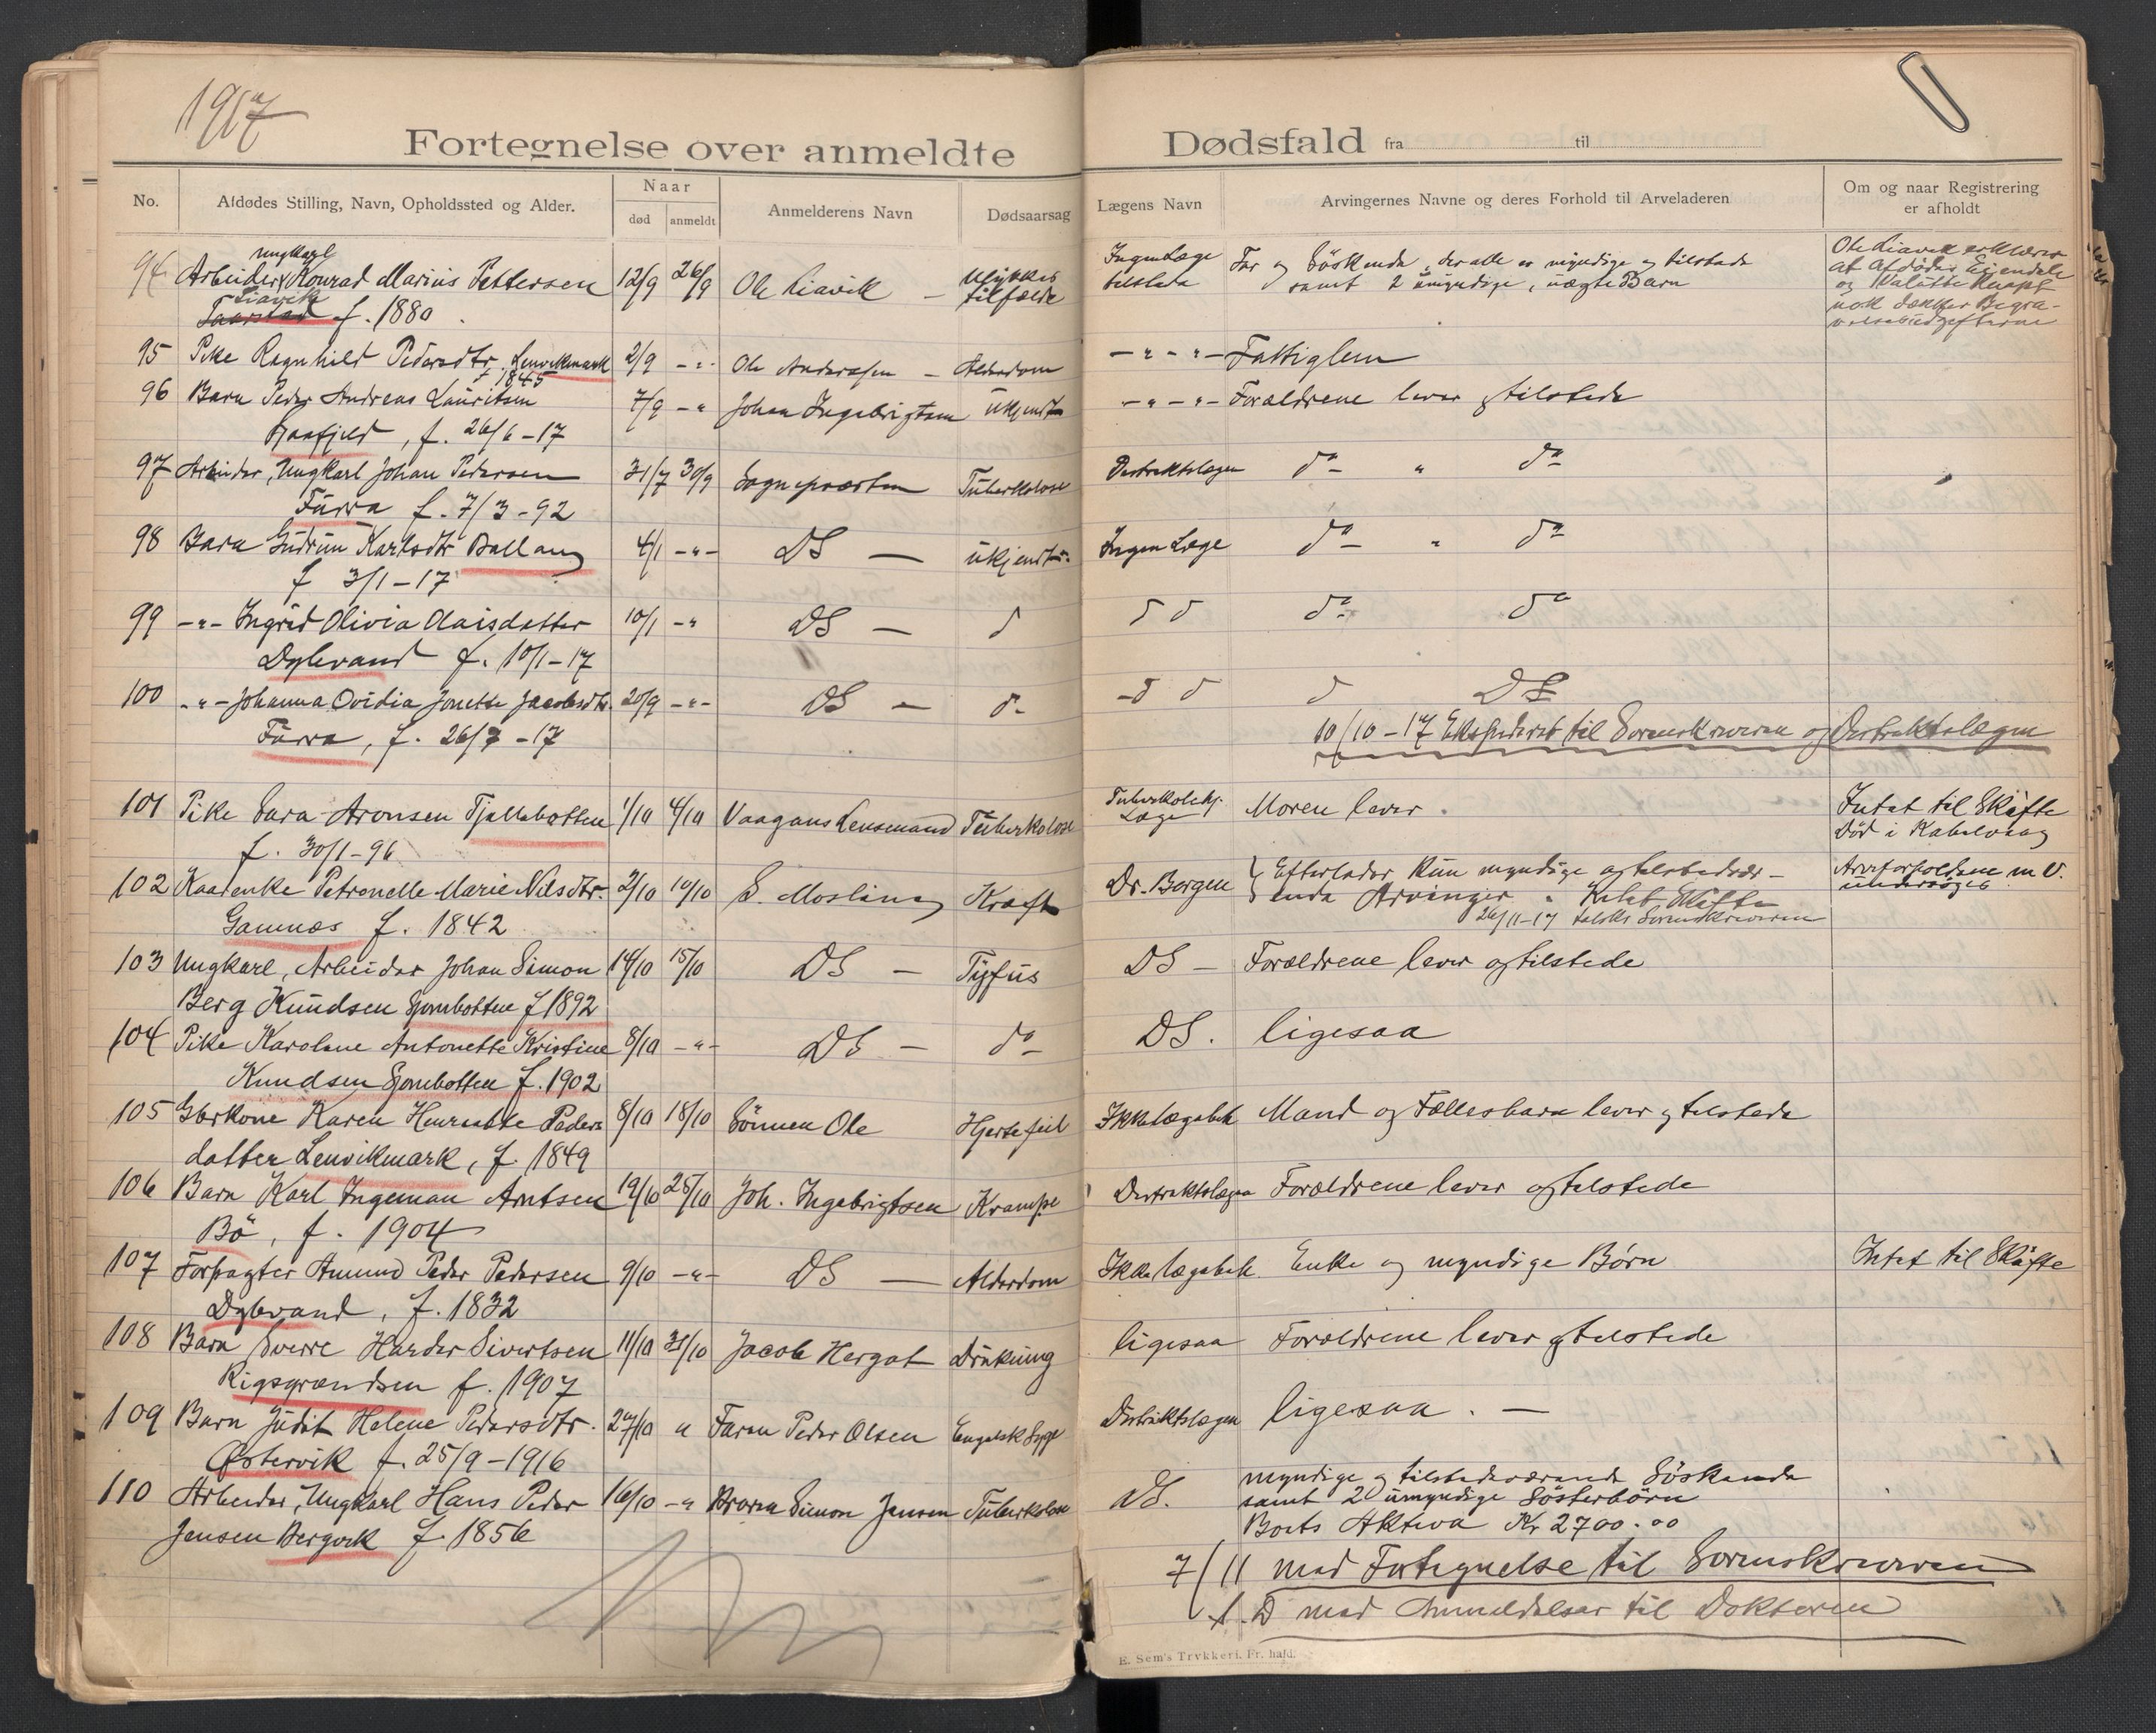 1917
Fortegnelse over anmeldte Dødsfald fra til
No. Afdødes Stilling, Navn, Opholdssted og Alder. Naar død anmeldt Anmelderens Navn Dødsaarsag Lægens Navn Arvingernes Navne og deres Forhold til Arveladeren Om og naar Registrering er afholdt
Ungkarl
94 Arbeider Konrad Marius Pettersen 12/9 26/9 Ole Liavik — Ulykkestilfælde Ingen Læge tilstede Far og Söskende, der alle er myndige og tilstede
Liavik
Taarstad f. 1880 samt 2 umyndige, uægte Barn
Ole Liavik erklærer
at Afdødes Eiendele
og Valutte knapt
nok dækker Begra-
velsesudgifterne
95 Pike Ragnhild Pedersdtr. Lenvikmark 2/9 -"- Ole Andersen — Alderdom —"—"— Fattiglem
f 1845
96 Barn Peder Andreas Lauritsen 7/9 -" Johan Ingebrigtsen ukjendt —"—"— Forældrene lever og tilstede
f. 26/6-17
97 Arbeider, Ungkarl Johan Pedersen 31/7 30/9 Sognepræsten Tuberkolose Destriktslægen do " do
Furra f. 7/3-92
98 Barn Gudrun Karlsdtr Ballang 4/1 -"- DS — ukjendt Ingen Læge do " do
f 3/1-17
99 -"- Ingrid Olivia Olaisdatter 10/1 -" DS — d d d do do
Dybvand f. 10/1-17
100 -"- Johanna Ovidia Jonette Jacobsdtr. 20/9 -"- DS — d- -d d d DS
Furra, f. 26/7-17
10/10-17 Ekspederet til Sorenskriveren og Destriktslægen
101 Pike Sara Aronsen Tjellebotten 1/10 4/10 Vaagans Lensmand Tuberkolose Tuberkolehj. Læge Moren lever. Intet til Skifte
f. 30/1-96 Død i Kabelvaag
102 Kaarenke Petronelle Marie Nilsdtr. 2/10 10/10 S. Mosling Kræft Dr. Borgen Efterlader kun myndige og telstedvær- Arveforholdene m V.
Gamnes f. 1842 ende Arvinger " Intet Skifte undersøges
26/11-17 telsks Sorenskriveren
103 Ungkarl, Arbeider Johan Simon 14/10 15/10 DS — Tyfus DS — Forældrene lever og tilstede
Berg Knudsen Sjombotten f 1892
104 Pike Karolene Antonette Kristine 8/10 -"- DS — do DS. ligesaa
Knudsen Sjombotten f. 1902
105 Gbrkone Karen Henreebte Peders 8/10 18/10 Sönnen Ole Hjertefeil Ikke lægebeh Mand og Fællesbarn lever og telstede
datter Lenvikmark, f. 1849
106 Barn Karl Ingeman Arntsen 19/10 25/10 Joh. Ingebrigtsen Krampe Destriktslægen Forældrene lever og telstede
Bö, f. 1904
107 Forpagter Amund Peder Pedersen 9/10 -"- DS — Alderdom Ikke lægebeh. Enke og myndige Börn Intet til Skifte
Dybvand, f. 1832
108 Barn Sverre Harder Sivertsen 11/10 31/10 Jacob Hergot Drukning ligesaa Forældrene lever og telstede
Rigsgrændsen f. 1907
109 Barn Judit Helene Pedersdtr. 27/10 " Faren Peder Olsen Engelsk Syge Destriktslægen ligesaa. —
Østervik f. 25/9-1916
110 Arbeider, Ungkarl Hans Peder 16/10 -" Broren Simon Jensen Tuberkolose DS. myndige og tilstedeværende Söskende
Jensen Bergvik f. 1856 samt 2 umyndige Sösterbörn
Boets Aktiva Kr 2700.00
7/11 med Fortegnelse til Sorenskriveren
s. D med Anmeldelser til Doktoren
E. Sem's Trykkeri. Fr. hald.